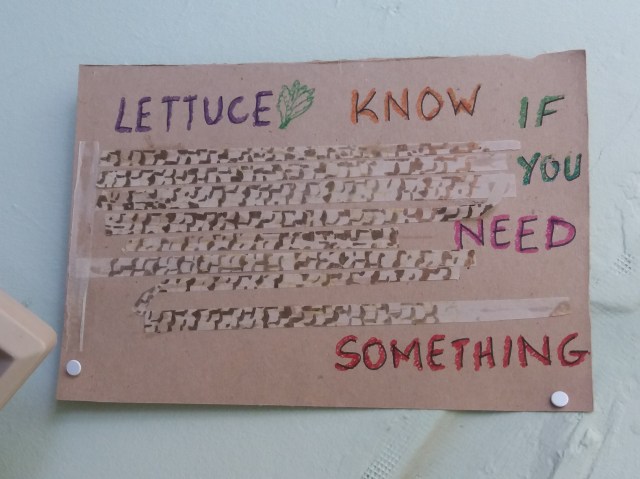 LETTUCE KNOW IF
YOU
NEED
SOMETHING